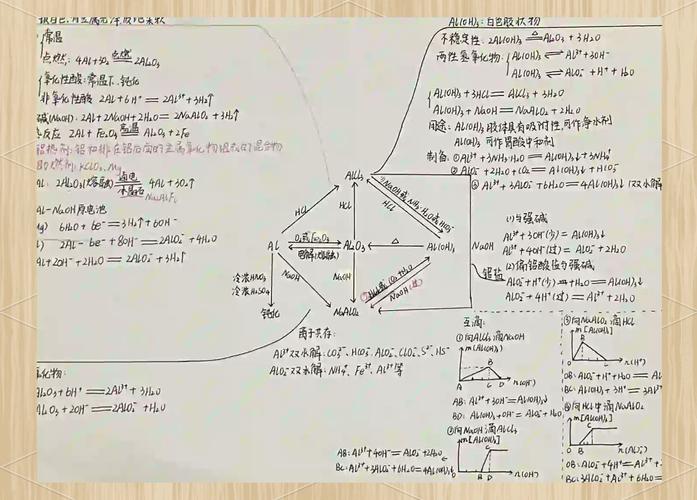 Al(OH)₃:白色胶状物
常温
点燃: 4Al+3O₂ 点燃══ 2Al₂O₃
氧化性酸:常温下,钝化
非氧化性酸 2Al+6H⁺══2Al³⁺+3H₂↑
碱(NaOH): 2Al+2NaOH+2H₂O══2NaAlO₂+3H₂↑
反应 2Al+Fe₂O₃ 高温══ Al₂O₃+2Fe
铝热剂:铝和排在铝后面的金属氧化物组成的混合物
助燃剂: KClO₃、Mg
Al: 2Al₂O₃(熔融) 通电══ 4Al+3O₂↑
冰晶石
Na₃AlF₆
Al-NaOH原电池
6H₂O+6e⁻══3H₂↑+6OH⁻
2Al-6e⁻+8OH⁻══2AlO₂⁻+4H₂O
Al+2OH⁻+2H₂O══2AlO₂⁻+3H₂↑
不稳定性: 2Al(OH)₃ △══ Al₂O₃+3H₂O
两性氢氧化物: Al(OH)₃⇌Al³⁺+3OH⁻
Al(OH)₃⇌AlO₂⁻+H⁺+H₂O
Al(OH)₃+3HCl══AlCl₃+3H₂O
Al(OH)₃+NaOH══NaAlO₂+2H₂O
用途: Al(OH)₃胶体具有吸附性,可作净水剂
Al(OH)₃可作胃酸中和剂
制备: ①Al³⁺+3NH₃·H₂O══Al(OH)₃↓+3NH₄⁺
②AlO₂⁻+2H₂O+CO₂══Al(OH)₃↓+HCO₃⁻
③Al³⁺+3AlO₂⁻+6H₂O══4Al(OH)₃↓(双水解
AlCl₃
HCl
HCl
HCl
NaOH或NH₃·H₂O或
Al
O₂或Fe₂O₃
电解(熔融)
Al₂O₃
△
Al(OH)₃
NaOH
冷浓HNO₃
冷浓H₂SO₄
NaOH
NaOH
HCl或CO₂+H₂O
NaOH(过)
钝化
NaAlO₂
铝盐
(1)与强碱
Al³⁺+3OH⁻(少)══Al(OH)₃↓
Al³⁺+4OH⁻(过)══AlO₂⁻+2H₂O
(2)偏铝酸盐与强酸
AlO₂⁻+H⁺(少)+H₂O══Al(OH)₃↓
AlO₂⁻+4H⁺(过)══Al³⁺+2H₂O
离子共存:
Al³⁺双水解: CO₃²⁻、HCO₃⁻、AlO₂⁻、ClO⁻、S²⁻、HS⁻
AlO₂⁻双水解: NH₄⁺、Fe³⁺、Al³⁺等
化物:
Al₂O₃+6H⁺══2Al³⁺+3H₂O
Al₂O₃+2OH⁻══2AlO₂⁻+H₂O
互滴:
①向AlCl₃滴NaOH
m[Al(OH)₃]
B
A
C
D
n(OH⁻)
AB: Al³⁺+3OH⁻══Al(OH)₃↓
BD: Al(OH)₃+OH⁻══AlO₂⁻+2H₂O
②向NaOH滴AlCl₃
m[Al(OH)₃]
C
A
B
AB: Al³⁺+4OH⁻══AlO₂⁻+2H₂O
BC: Al³⁺+3AlO₂⁻+6H₂O══4Al(OH)₃↓
③向NaAlO₂滴HCl
m[Al(OH)₃]
B
A
C
n(H⁺)
OB: AlO₂⁻+H⁺+H₂O══Al
BC: Al(OH)₃+3H⁺══3Al³⁺
④向HCl中滴NaAlO₂
m[Al(OH)₃]
C
B
n(AlO₂⁻)
OB: AlO₂⁻+4H⁺══Al³⁺+
BC: 3AlO₂⁻+Al³⁺+6H₂O══